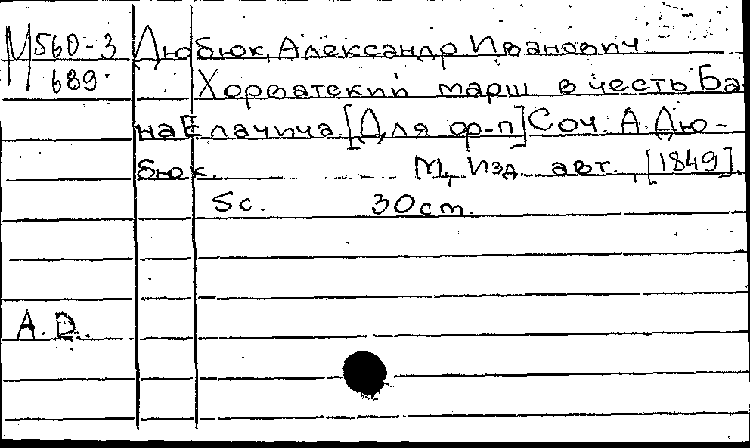 М560-3 Дюбюк, Александр Иванович
689 Хорватский марш в честь Ба-
на Елачича. [Для ф-п] Соч. А. Дю-
бюк. М., Изд. авт., [1849].
5с. 30ст.
A. D.